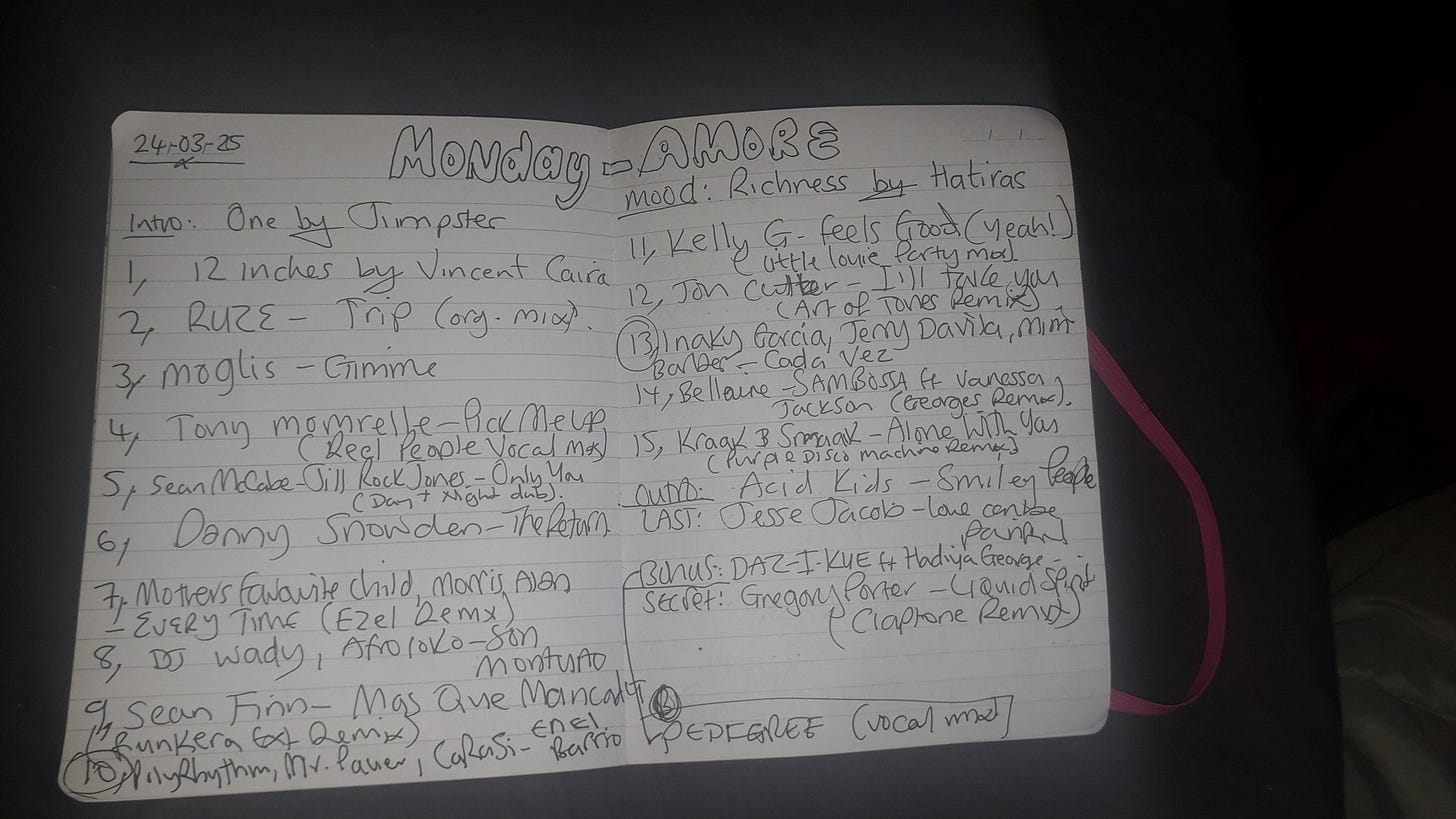 24-03-25
Monday - AMORE
Intro: One by Jimpster
1, 12 inches by Vincent Caira
2, RUZE - Trip (org. mix).
3, moglis - Gimme
4, Tony momrelle - Pick Me Up
(Reel People Vocal Mix)
5, Sean McCabe - Jill Rock Jones - Only You
(Day + Night dub).
6, Danny Snowden - The Return
7, Mothers favourite child, Morris Alan
- EVERY TIME (Ezel Remix)
8, DJ Wady, Afroloko - Son
Montuno
9, Sean Finn - Mas Que Mancada
(Bunkera Ext Remix)
10, PolyRhythm, Mr. Pauer, CaRaSi - EN EL
Barrio
mood: Richness by Hatiras
11, Kelly G - feels Good (Yeah!)
(Little louie Party mix).
12, Jon Cutler - I'll take you
(Art of Tones Remix)
13, Inaky Garcia, Jerry Davila, Mint
Barber - Cada Vez
14, Bellaire - SAMBOSSA ft Vanessa
Jackson (Georges Remix).
15, Kraak & Smaak - Alone With You
(Purple Disco machine Remix)
OUTRO: Acid Kids - Smiley People
LAST: Jesse Jacob - love can be
painful
Bonus: DAZ-I-KUE ft Hadiya George -
Secret: Gregory Porter - Liquid Spirit
(Claptone Remix)
B
PEDEGREE (vocal mix)